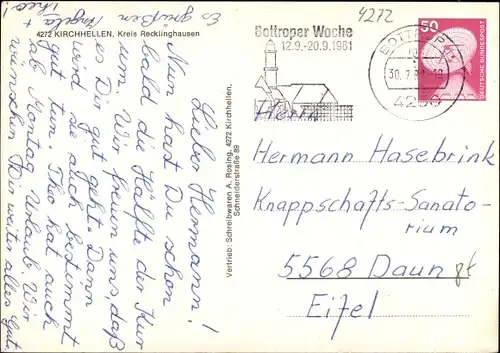 4272 KIRCHHELLEN, Kreis Recklinghausen
Lieber Hermann!
Nun hast Du schon
bald die Hälfte der Kur
um. Wir freuen uns, daß
es Dir gut geht. Dann
wird sie auch bestimmt
gut tun. Theo hat auch
ab Montag Urlaub. Wir
wünschen Dir weiter alles Gut
Es grüßen Angela +
Theo
Vertrieb: Schreibwaren A. Rosing, 4272 Kirchhellen,
Schneiderstraße 89
4272
Bottroper Woche
12.9.-20.9.1981
BOTTROP
30.7.81
4250
50
DEUTSCHE BUNDESPOST
Herrn
Hermann Hasebrink
Knappschafts-Sanato-
rium
5568 Daun
Eifel